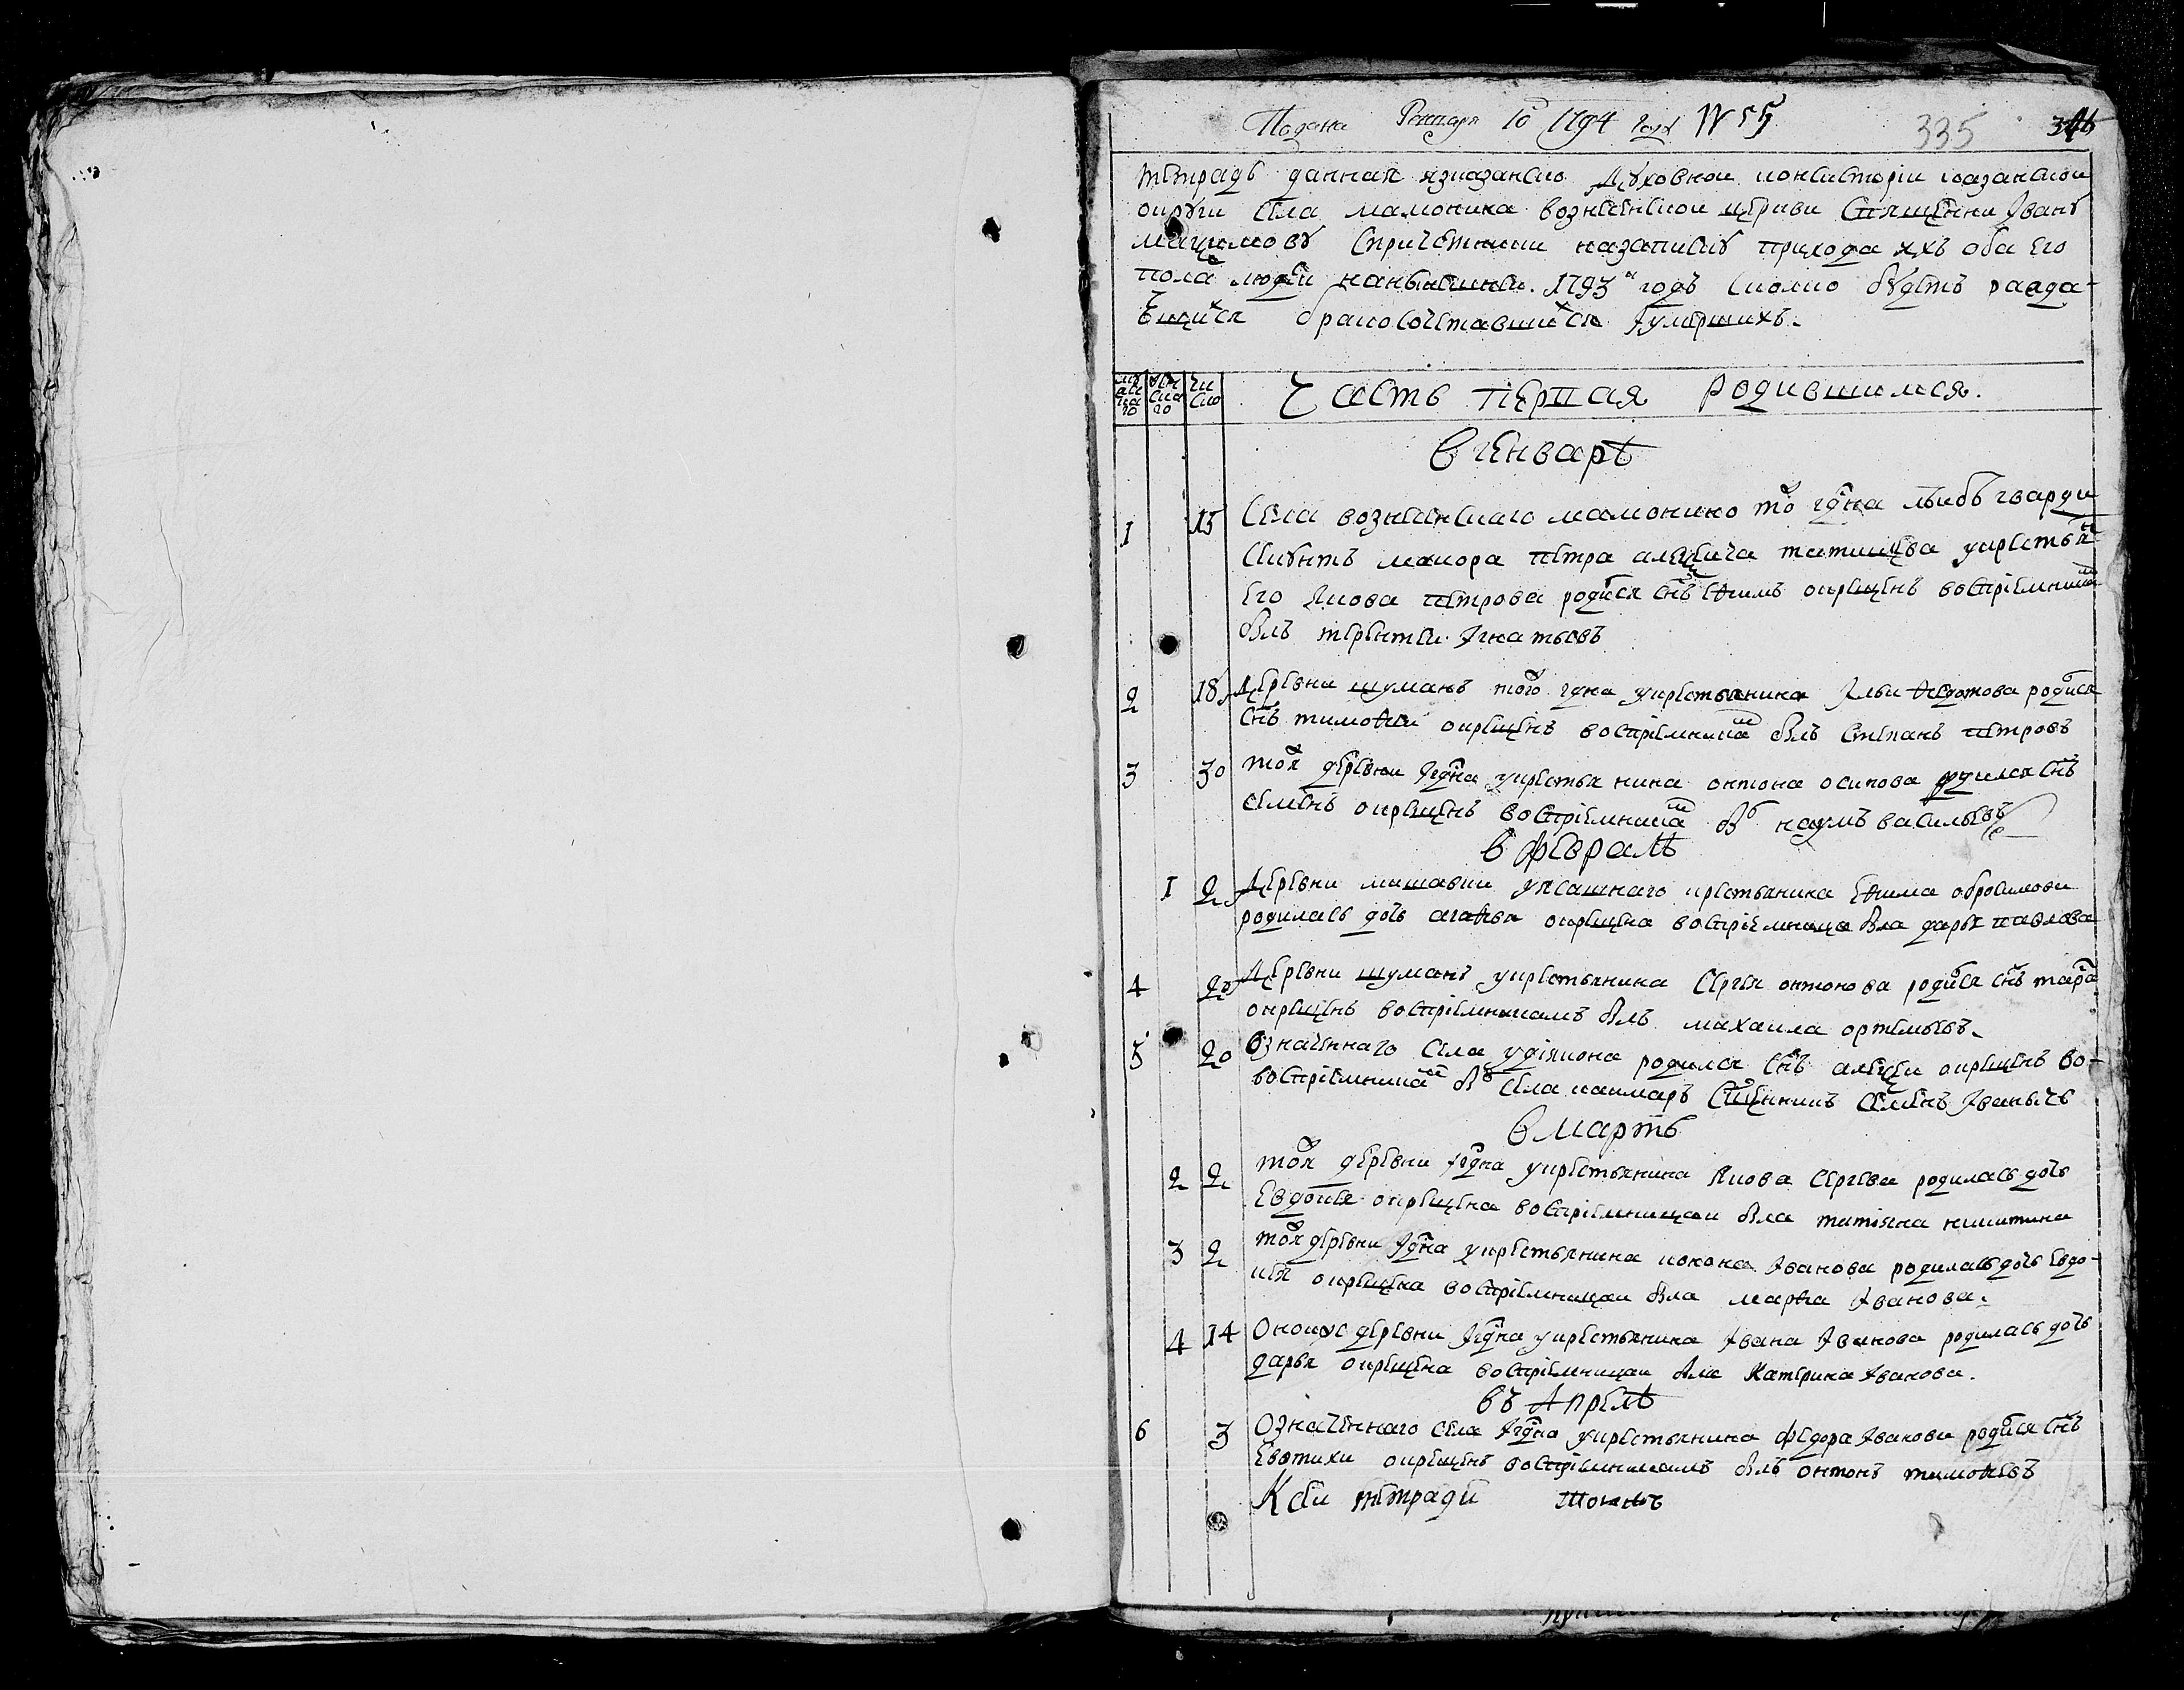 Подана Генваря 10 1794 года № 55 335
тетрадь данная изказанско Духовнои консисторіи казанскои
округи села мамонина вознесенскои церкви Священни Івану
с причетники на записку прихода ихъ оба его
пола людеи нанынешнеи 1793 годъ сколко будетъ ражда-
ющихся бракосочетавшихся Іумершихъ.
муж ска го
жен ска го
чи сло
Часть первая родившимся.
В генваре
1 15 Села вознесенскаго мамонино того гдна леибъ гварди
секунтъ маиора петра алексеича татищева укрестьянина
его якова петрова родился снъ ефимъ окрещенъ воспріемникомъ
былъ терентеи Ігнатьевъ
2 18 Деревни шуманъ того гдна укрестьянина Ильи родился
снъ тимофеи окрещенъ воспріемникомъ былъ степанъ петровъ
3 30 тоя деревни Ігдна укрестьянина онтона осипова родился снъ
семенъ окрещенъ воспріемникомъ бы наумъ васильевъ
в феврале
1 2 Деревни уясашнаго крестьянина ефима
родилась дочь агафья окрещена воспріемница была дарья павлова
4 20 Деревни шуманъ укрестьянина сергея онтонова родился снъ тара
окрещенъ воспріемникомъ былъ михаила ортемьевъ.
5 20 Означеннаго села удіякона родился снъ алексеи окрещенъ во-
воспріемникомъ бы села каимаръ священникъ семенъ Іванычь
в мартѣ
2 2 тоя деревни Ігдна укрестьянина якова сергеева родилась дочь
евдокея окрещена воспріемницеи была татіяна никитина
3 2 тоя деревни Ігдна укрестьянина конона Іванова родилась дочь евдо-
кея окрещена воспріемницеи была марфа Іванова.
4 14 Оноиже деревни Ігдна укрестьянина Івана Іванова родилась дочь
дарья окрещена воспріемницеи была Катерина Іванова.
въ Апреле
6 3 Означеннаго села Ігдна укрестьянина федора Іванова родился снъ
евтихи окрещенъ воспріемникомъ былъ онтонъ тимофеевъ
К сеи тетради